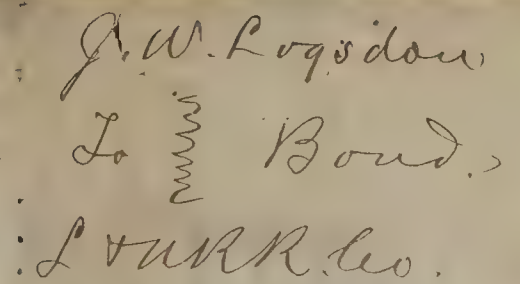 J. W. Logsdon
To Bond.
L & N R R. Co.